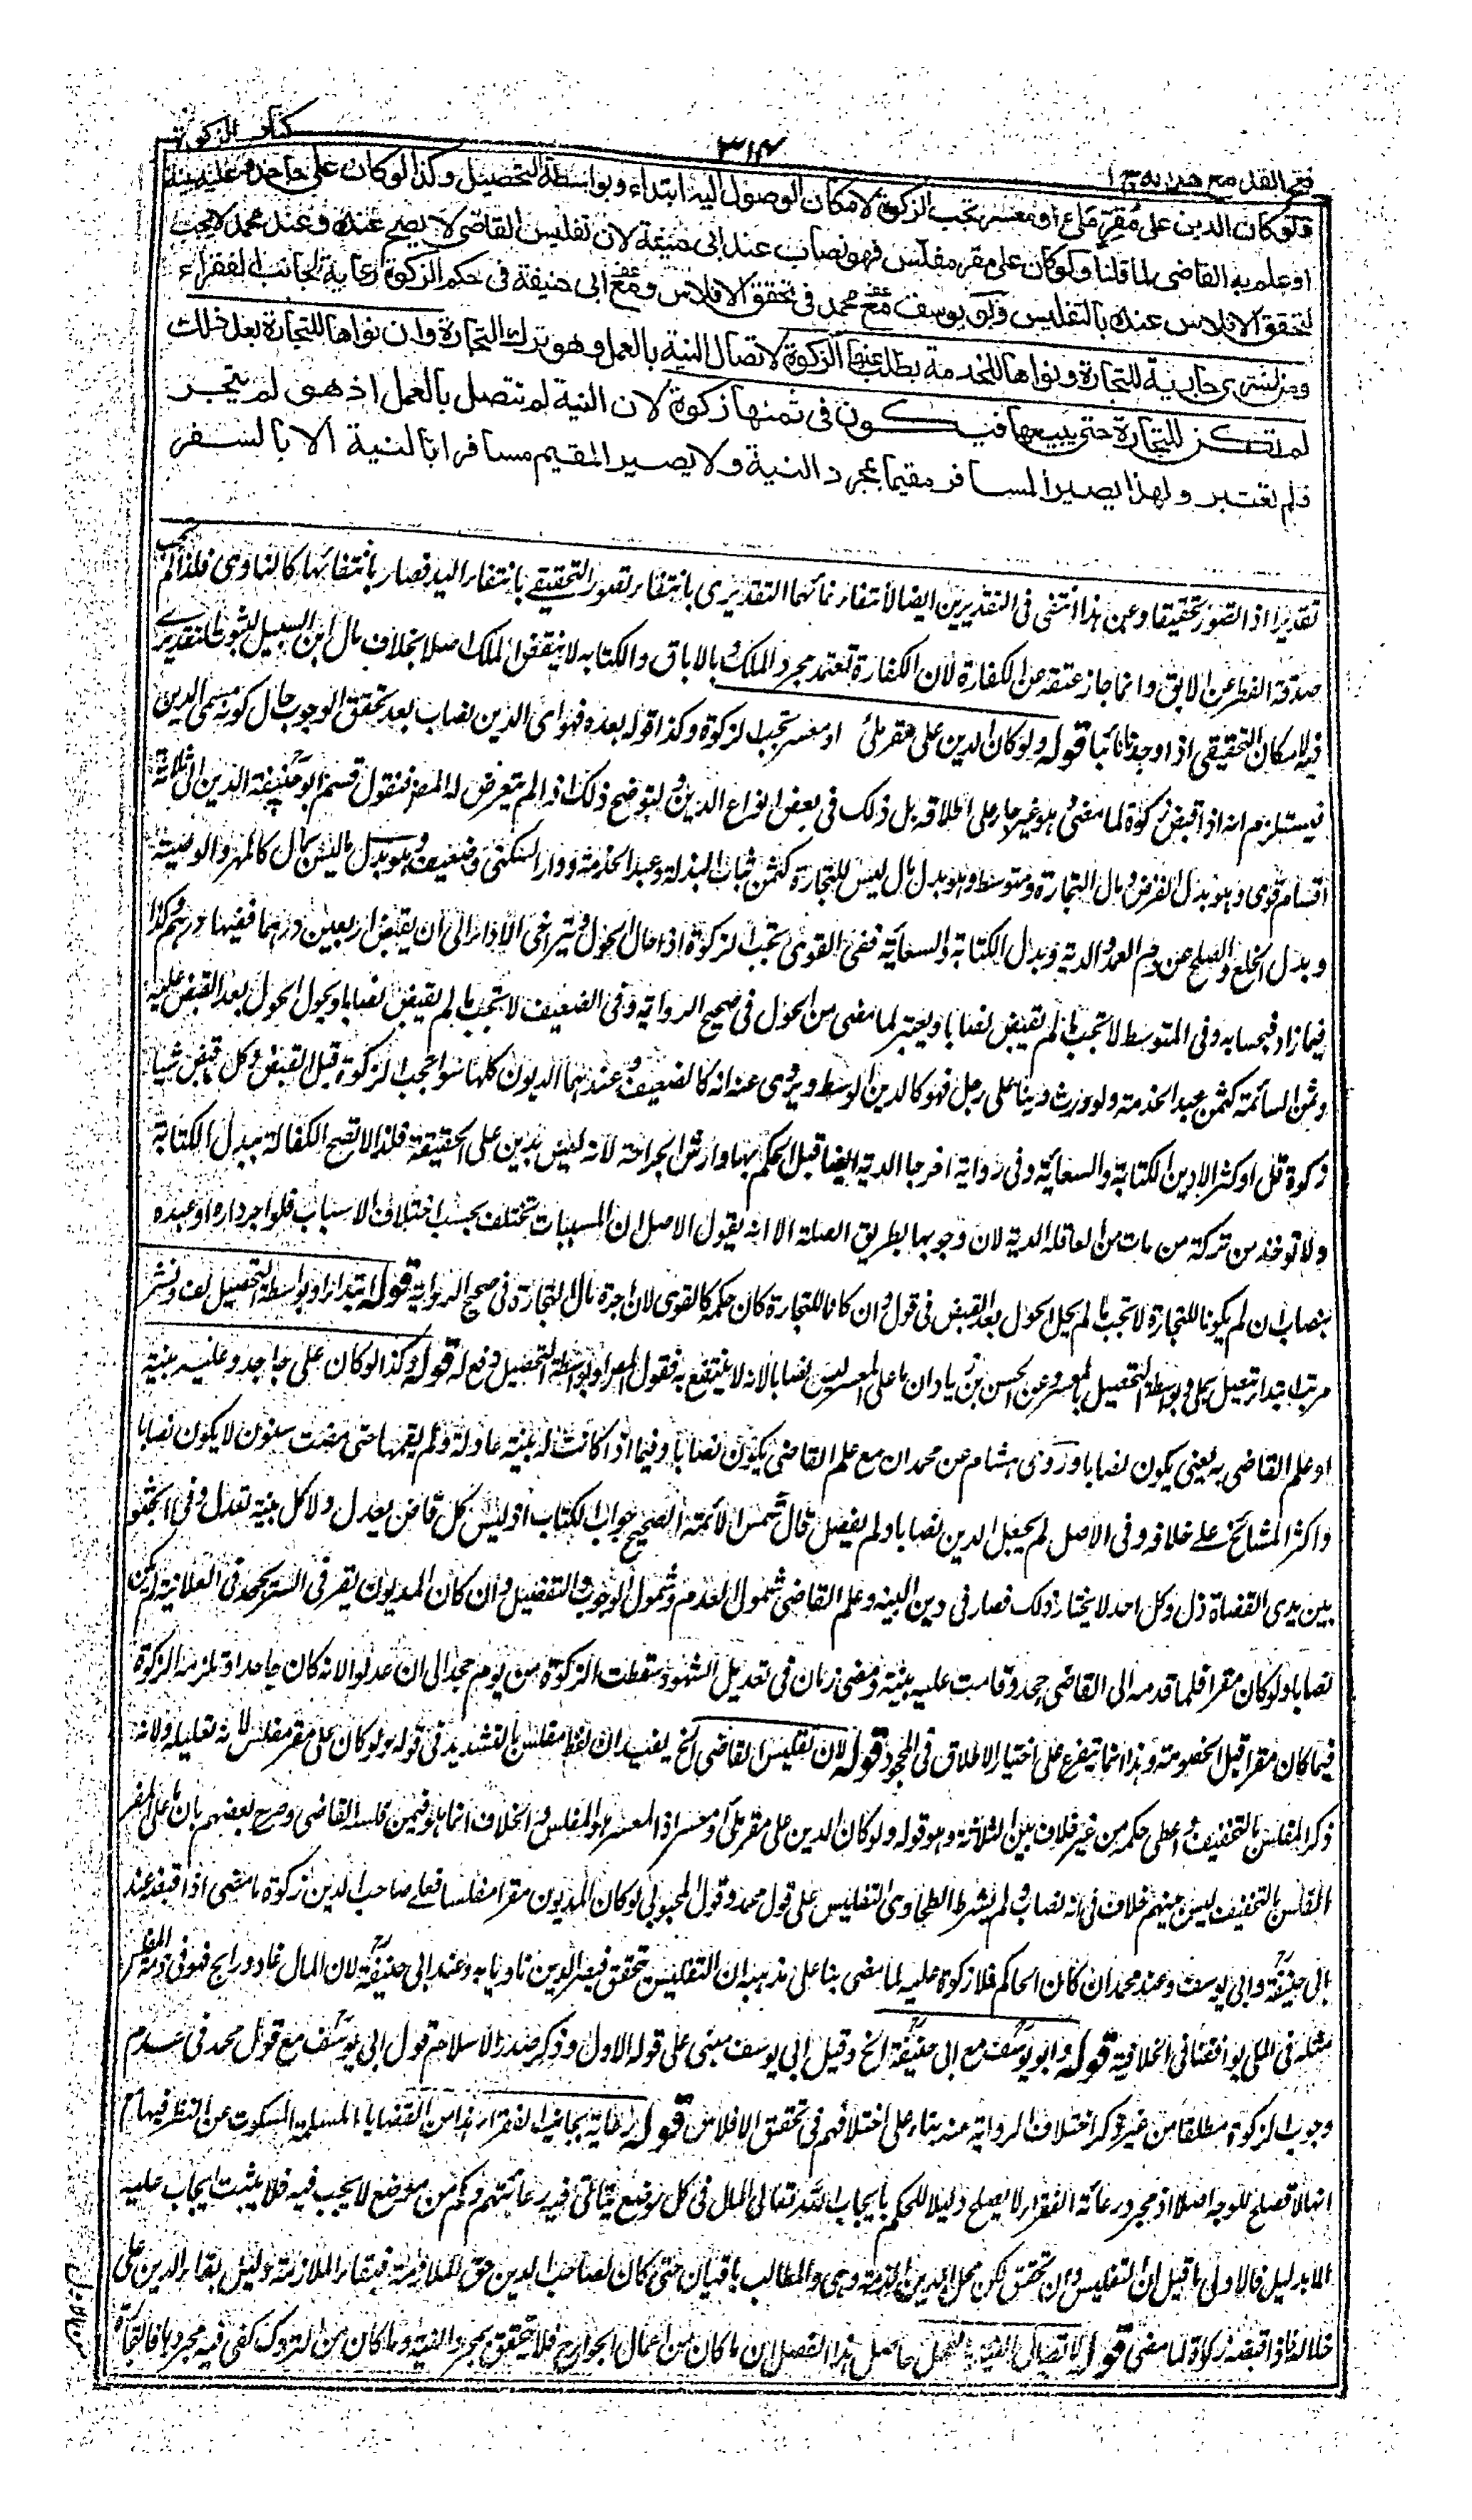 فتح القدير مع هدايه ج ا
٣١٤
كتاب الزكوة
ولو كان الدين على مقر ملئ او معسر تجب الزكوة لامكان الوصول اليه ابتداء وبواسطة التحصيل وكذا لو كان على جاحد وعليه بينة
او علم به القاضى لما قلنا ولو كان على مقر مفلس فهو نصاب عند ابى حنيفة لان تفليس القاضى لا يصح عنده وعند محمد لا يجب
لتحقق الافلاس عنده بالتفليس وابو يوسف مع محمد فى تحقق الافلاس ومع ابى حنيفة فى حكم الزكوة رعاية لجانب الفقراء
ومن اشترى جارية للتجارة ونواها للخدمة بطلت عنها الزكوة لاتصال النية بالعمل وهو ترك التجارة وان نواها للتجارة بعد ذلك
لم تكن للتجارة حتى يبيعها فيكون فى ثمنها زكوة لان النية لم تتصل بالعمل اذ هو لم يتجر
فلم تعتبر ولهذا يصير المسافر مقيما بمجرد النية ولا يصير المقيم مسافرا بالنية الا بالسفر
تقديرا اذا تصور تحقيقا وعن هذا انتفى فى النقدين ايضا لانتفاء نمائهما التقديرى بانتفاء تصور التحقيقى بانتفاء اليد فصار بانتفائها كالتاوى فلذا لم تجب
صدقة الفطر عن الابق وانما جاز عتقه عن الكفارة لان الكفارة تعتمد مجرد الملك وبالاباق والكتابه لا ينتقض الملك اصلا بخلاف مال ابن السبيل لثبوت التقديرى
فيه لامكان التحقيقى اذا وجد نائبا قوله ولو كان الدين على مقر ملئ او معسر تجب الزكوة وكذا قوله بعده فهو اى الدين نصاب بعد تحقق الوجوب حال كونه مسمى الدين
فيستلزم انه اذا قبض زكوة لما مضى وهو غير جار على اطلاقه بل ذلك فى بعض انواع الدين ولتوضح ذلك اذ لم يتعرض له المصنف فنقول قسم ابو حنيفة الدين الى ثلاثة
اقسام قوى وهو بدل القرض ومال التجارة ومتوسط وهو بدل مال ليس للتجارة كثمن ثياب البذلة وعبد الخدمة ودار السكنى وضعيف وهو بدل ما ليس بمال كالمهر والوصية
وبدل الخلع والصلح عن دم العمد والدية وبدل الكتابة والسعاية ففى القوى تجب الزكوة اذا حال الحول ويتراخى الاداء الى ان يقبض اربعين درهما ففيها درهم وكذا
فيما زاد فبحسابه وفى المتوسط لا تجب ما لم يقبض نصابا ويعتبر لما مضى من الحول فى صحيح الرواية وفى الضعيف لا تجب ما لم يقبض نصابا ويحول الحول بعد القبض عليه
وثمن السائمة كثمن عبد الخدمة ولو ورث دينا على رجل فهو كالدين الوسط ويروى عنه انه كالضعيف وعندهما الديون كلها سواء تجب الزكوة قبل القبض وكل قبض شيئا
زكوة قل او كثر الا دين الكتابة والسعاية وفى رواية اخرجا الدية ايضا قبل الحكم بها وارش الجراحة لانه ليس بدين على الحقيقة فلذا لا تصح الكفالة ببدل الكتابة
ولا تؤخذ من تركة من مات من العاقلة الدية لان وجوبها بطريق الصلة الا انه يقول الاصل ان المسببات تختلف بحسب اختلاف الاسباب فلو اجر داره او عبده
بنصاب ان لم يكونا للتجارة لا تجب ما لم يحل الحول بعد القبض فى قول وان كانا للتجارة كان حكمه كالقوى لان اجرة مال التجارة فى صحيح الرواية قوله ابتداء او بواسطة التحصيل لف ونشر
مرتب ابتداء يتصل بملئ وبواسطة التحصيل بالمعسر وعن الحسن بن زياد ان ما على المعسر ليس نصابا لانه لا ينتفع به فقول المصنف او بواسطة التحصيل دفع له قوله وكذا لو كان على جاحد وعليه بينة
او علم القاضى به يعنى يكون نصابا وروى هشام عن محمد ان مع علم القاضى يكون نصابا وفيما اذا كانت له بينة عادلة ولم يقمها حتى مضت سنون لا يكون نصابا
واكثر المشائخ على خلافه وفى الاصل لم يجعل الدين نصابا ولم يفصل قال شمس الائمة الصحيح جواب الكتاب اذ ليس كل قاض يعدل ولا كل بينة تعدل وفى الجثو
بين يدى القضاة ذل وكل احد لا يختار ذلك فصار فى دين البينة وعلم القاضى شمول العدم وشمول الوجوب والتفصيل وان كان المديون يقر فى السر ويجحد فى العلانية لم يكن
نصابا ولو كان مقرا فلما قدمه الى القاضى جحد وقامت عليه بينة ومضى زمان فى تعديل الشهود سقطت الزكوة من يوم جحد الى ان عدلوا لانه كان جاحدا وتلزمه الزكوة
فيما كان مقرا قبل الخصومة وهذا انما يتفرع على اختيار الاطلاق فى الجحود قوله لان تفليس القاضى الخ يفيد ان لفظ مفلس بالتشديد فى قوله ولو كان على مقر مفلس لانه تعليله ولانه
ذكر المفلس بالتخفيف واعطى حكمه من غير خلاف بين الثلاثة وهو قوله ولو كان الدين على مقر ملئ او معسر اذ المعسر هو المفلس والخلاف انما هو فيمن فلسه القاضى وصرح بعضهم بان ما على المقر
المفلس بالتخفيف ليس بينهم خلاف فى انه نصاب ولم يشرط الطحاوى التفليس على قول محمد وقول المحبوبى لو كان المديون مقرا مفلسا فعلى صاحب الدين زكوة ما مضى اذا قبضه عند
ابى حنيفة وابى يوسف وعند محمد ان كان الحاكم فلسه فلا زكوة عليه لما مضى بناء على مذهبه ان التفليس يتحقق فيصير الدين تاويا به وعند ابى حنيفة لان المال غاد ورائح فهو فى ذمة المفلس
مثله فى الملئ يوافقنا فى الخلافية قوله وابو يوسف مع ابى حنيفة الخ وقيل ابى يوسف مبنى على قوله الاول وذكر صدر الاسلام قول ابى يوسف مع قول محمد فى عدم
وجوب الزكوة مطلقا من غير ذكر اختلاف الرواية عنه بناء على اختلافهم فى تحقق الافلاس قوله رعاية لجانب الفقراء هذا من القضايا المسلمة المسكوت عن النظر فيها مع
انها لا تصلح للوجه اصلا اذ مجرد رعاية الفقراء لا يصلح دليلا للحكم بايجاب الله تعالى المال فى كل موضع يتاتى فيه رعايتهم وكم من موضع لا يجب فيه فلا يثبت ايجاب عليه
الا بدليل فالاولى ما قيل ان التفليس وان تحقق لكن محل الدين الذمة وهى والمطالب باقيان حتى كان لصاحب الدين حق الملازمة فبقاء الملازمة دليل بقاء الدين على
حاله فاذا قبضه زكاة لما مضى قوله لاتصال النية بالعمل حاصل هذا الفصل ان ما كان من اعمال الجوارح فلا يتحقق بمجرد النية وما كان من التروك كفى فيه مجردها فالتجارة